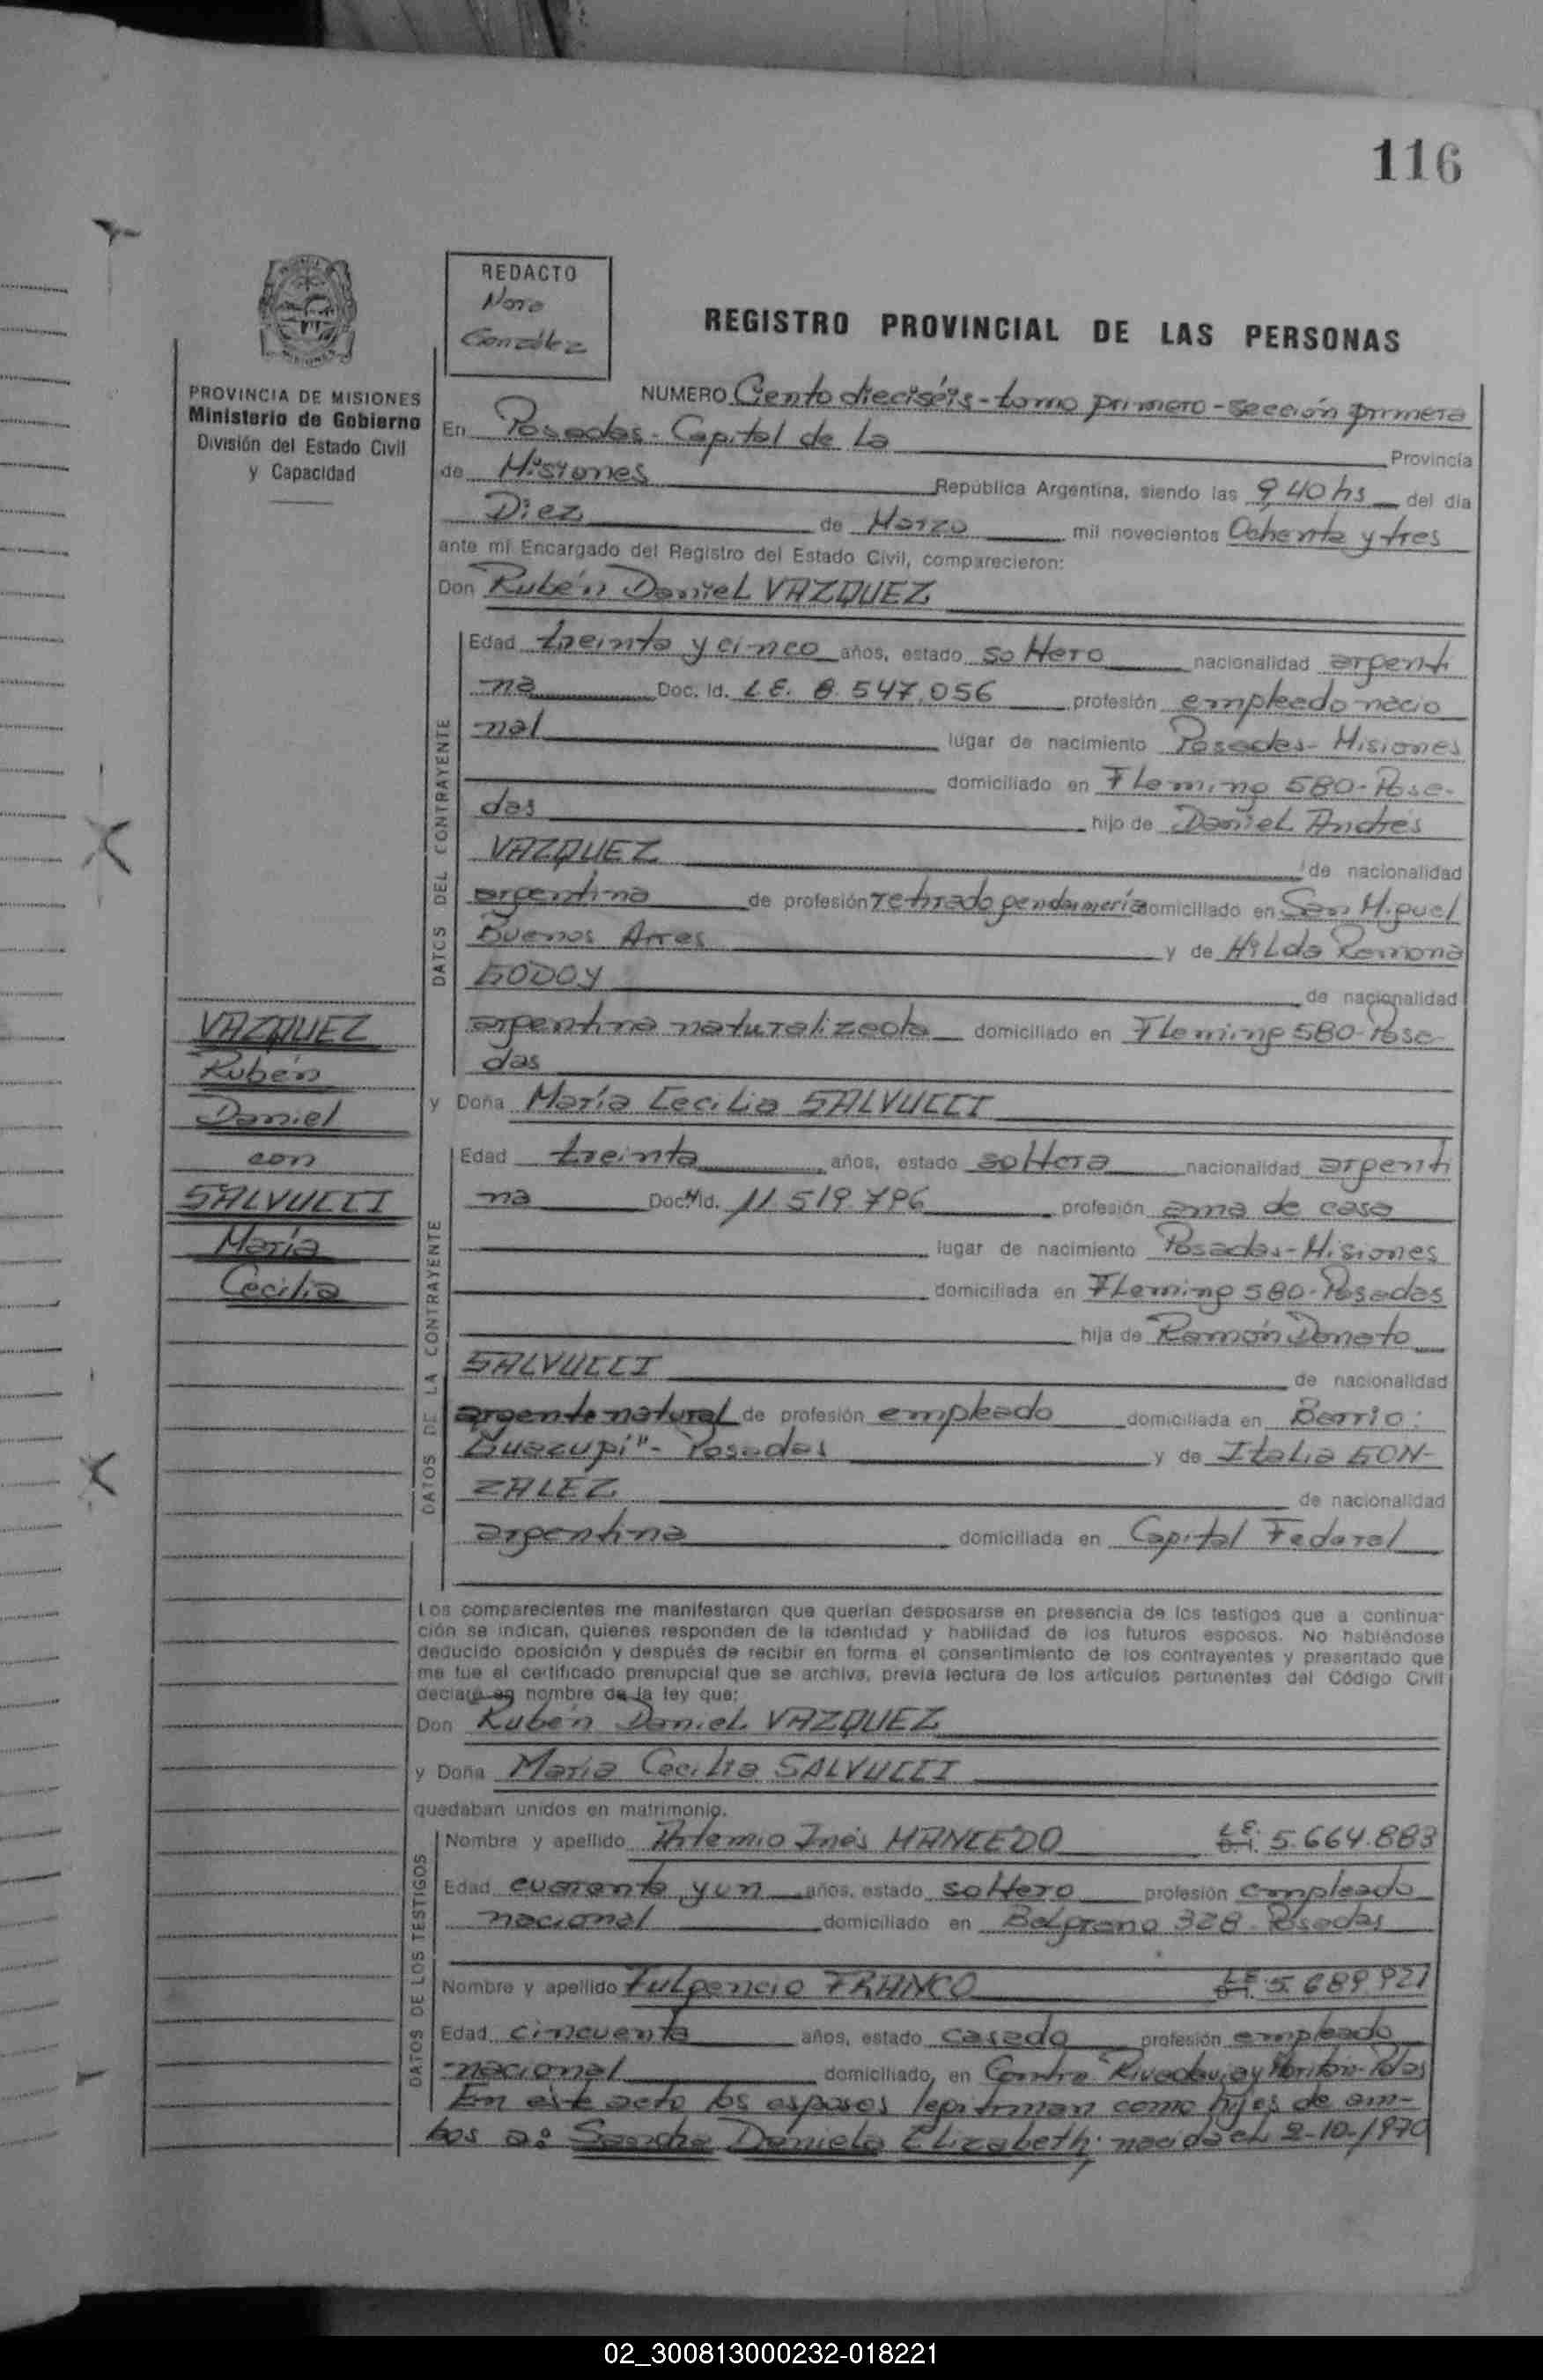 116
REDACTO
Nora
González
REGISTRO PROVINCIAL DE LAS PERSONAS
PROVINCIA DE MISIONES
Ministerio de Gobierno
División del Estado Civil
y Capacidad
NUMERO Ciento dieciséis - tomo primero - sección primera
En Posadas - Capital de La Provincia
de Misiones República Argentina, siendo las 9,40 hs del día
Diez de Marzo mil novecientos Ochenta y tres
ante mí Encargado del Registro del Estado Civil, comparecieron:
Don Rubén Daniel VAZQUEZ
DATOS DEL CONTRAYENTE
Edad treinta y cinco años, estado soltero nacionalidad argenti
na Doc. Id. L.E. 8.547.056 profesión empleado nacio
nal lugar de nacimiento Posadas - Misiones
domiciliado en Fleming 580 - Posa-
das hijo de Daniel Andrés
VAZQUEZ de nacionalidad
argentina de profesión retirado gendarmería domiciliado en San Miguel
Buenos Aires y de Hilda Ramona
GODOY de nacionalidad
argentina naturalizada domiciliado en Fleming 580 - Posa-
das
VAZQUEZ
Rubén
Daniel
con
SALVUCCI
María
Cecilia
y Doña María Cecilia SALVUCCI
DATOS DE LA CONTRAYENTE
Edad treinta años, estado soltera nacionalidad argenti
na Doc. Id. 11.519.796 profesión ama de casa
lugar de nacimiento Posadas - Misiones
domiciliada en Fleming 580 - Posadas
hija de Ramón Donato
SALVUCCI de nacionalidad
natural de profesión empleado domiciliada en Barrio:
Guazupí" - Posadas y de Italia GON-
ZALEZ de nacionalidad
argentina domiciliada en Capital Federal
Los comparecientes me manifestaron que querían desposarse en presencia de los testigos que a continua-
ción se indican, quienes responden de la identidad y habilidad de los futuros esposos. No habiéndose
deducido oposición y después de recibir en forma el consentimiento de los contrayentes y presentado que
me fue el certificado prenupcial que se archiva, previa lectura de los artículos pertinentes del Código Civil
declaré en nombre de la ley que:
Don Rubén Daniel VAZQUEZ
y Doña María Cecilia SALVUCCI
quedaban unidos en matrimonio.
DATOS DE LOS TESTIGOS
Nombre y apellido Artemio Inés MANCEDO L.E. D.I. 5.664.883
Edad cuarenta y un años, estado soltero profesión empleado
nacional domiciliado en Belgrano 328 - Posadas
Nombre y apellido Fulgencio FRANCO L.E. D.I. 5.689.921
Edad cincuenta años, estado casado profesión empleado
nacional domiciliado en Rivadavia y - Pdas
En este acto los esposos legitiman como hijos de am-
bos a: Sandra Daniela Elizabeth; nacida el 2-10-1970
02_300813000232-018221